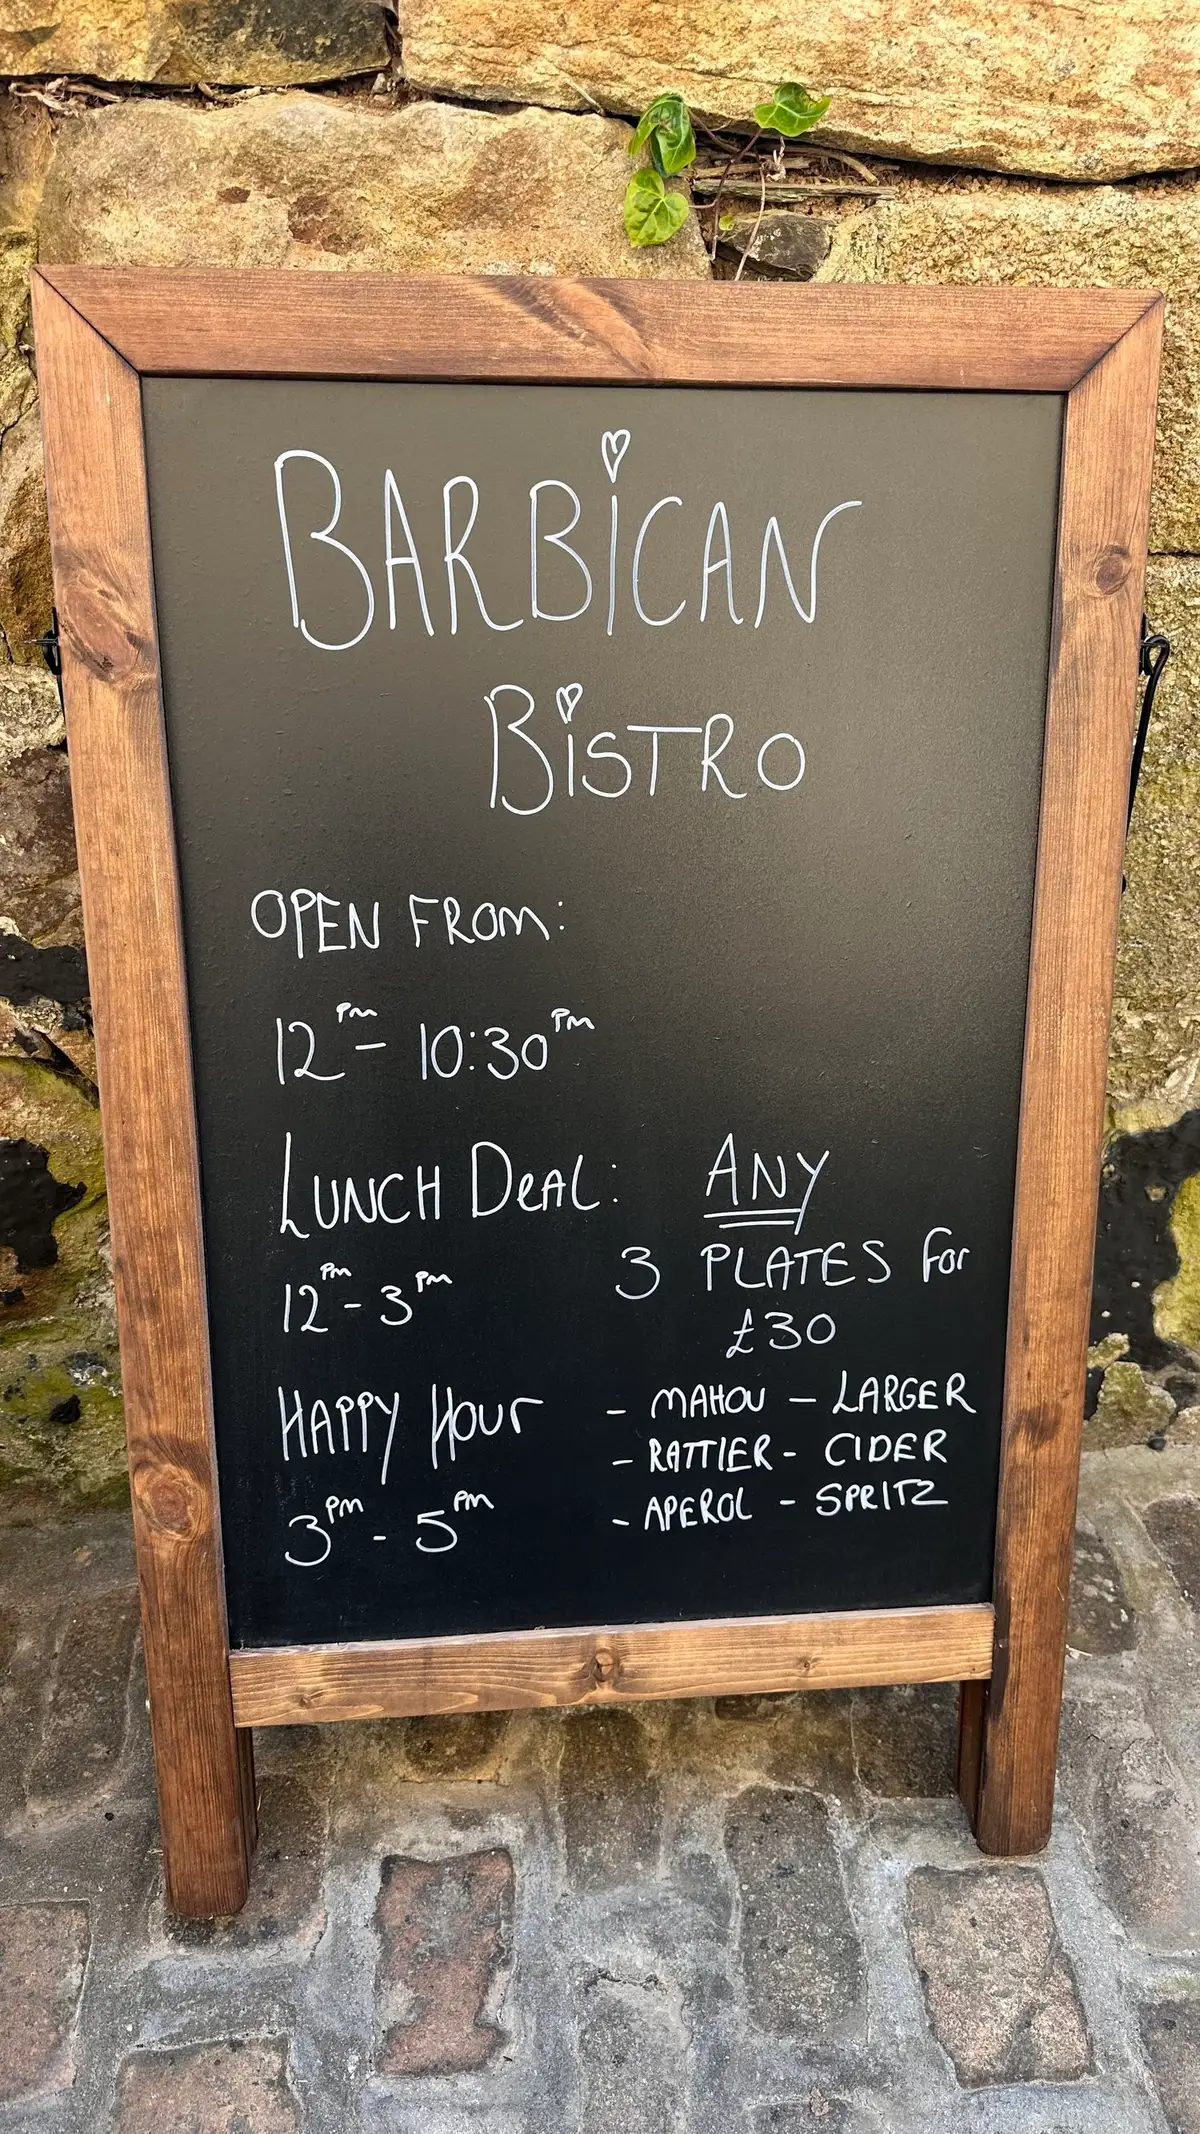 BARBiCAN
BiSTRO
OPEN FROM:
12pm - 10:30pm
LUNCH DeAL:
12pm - 3pm
ANY
3 PLATES for
£30
HAPPY HOUr
3pm - 5pm
- MAHOU - LARGER
- RATTIER - CIDER
- APEROL - SPRITZ